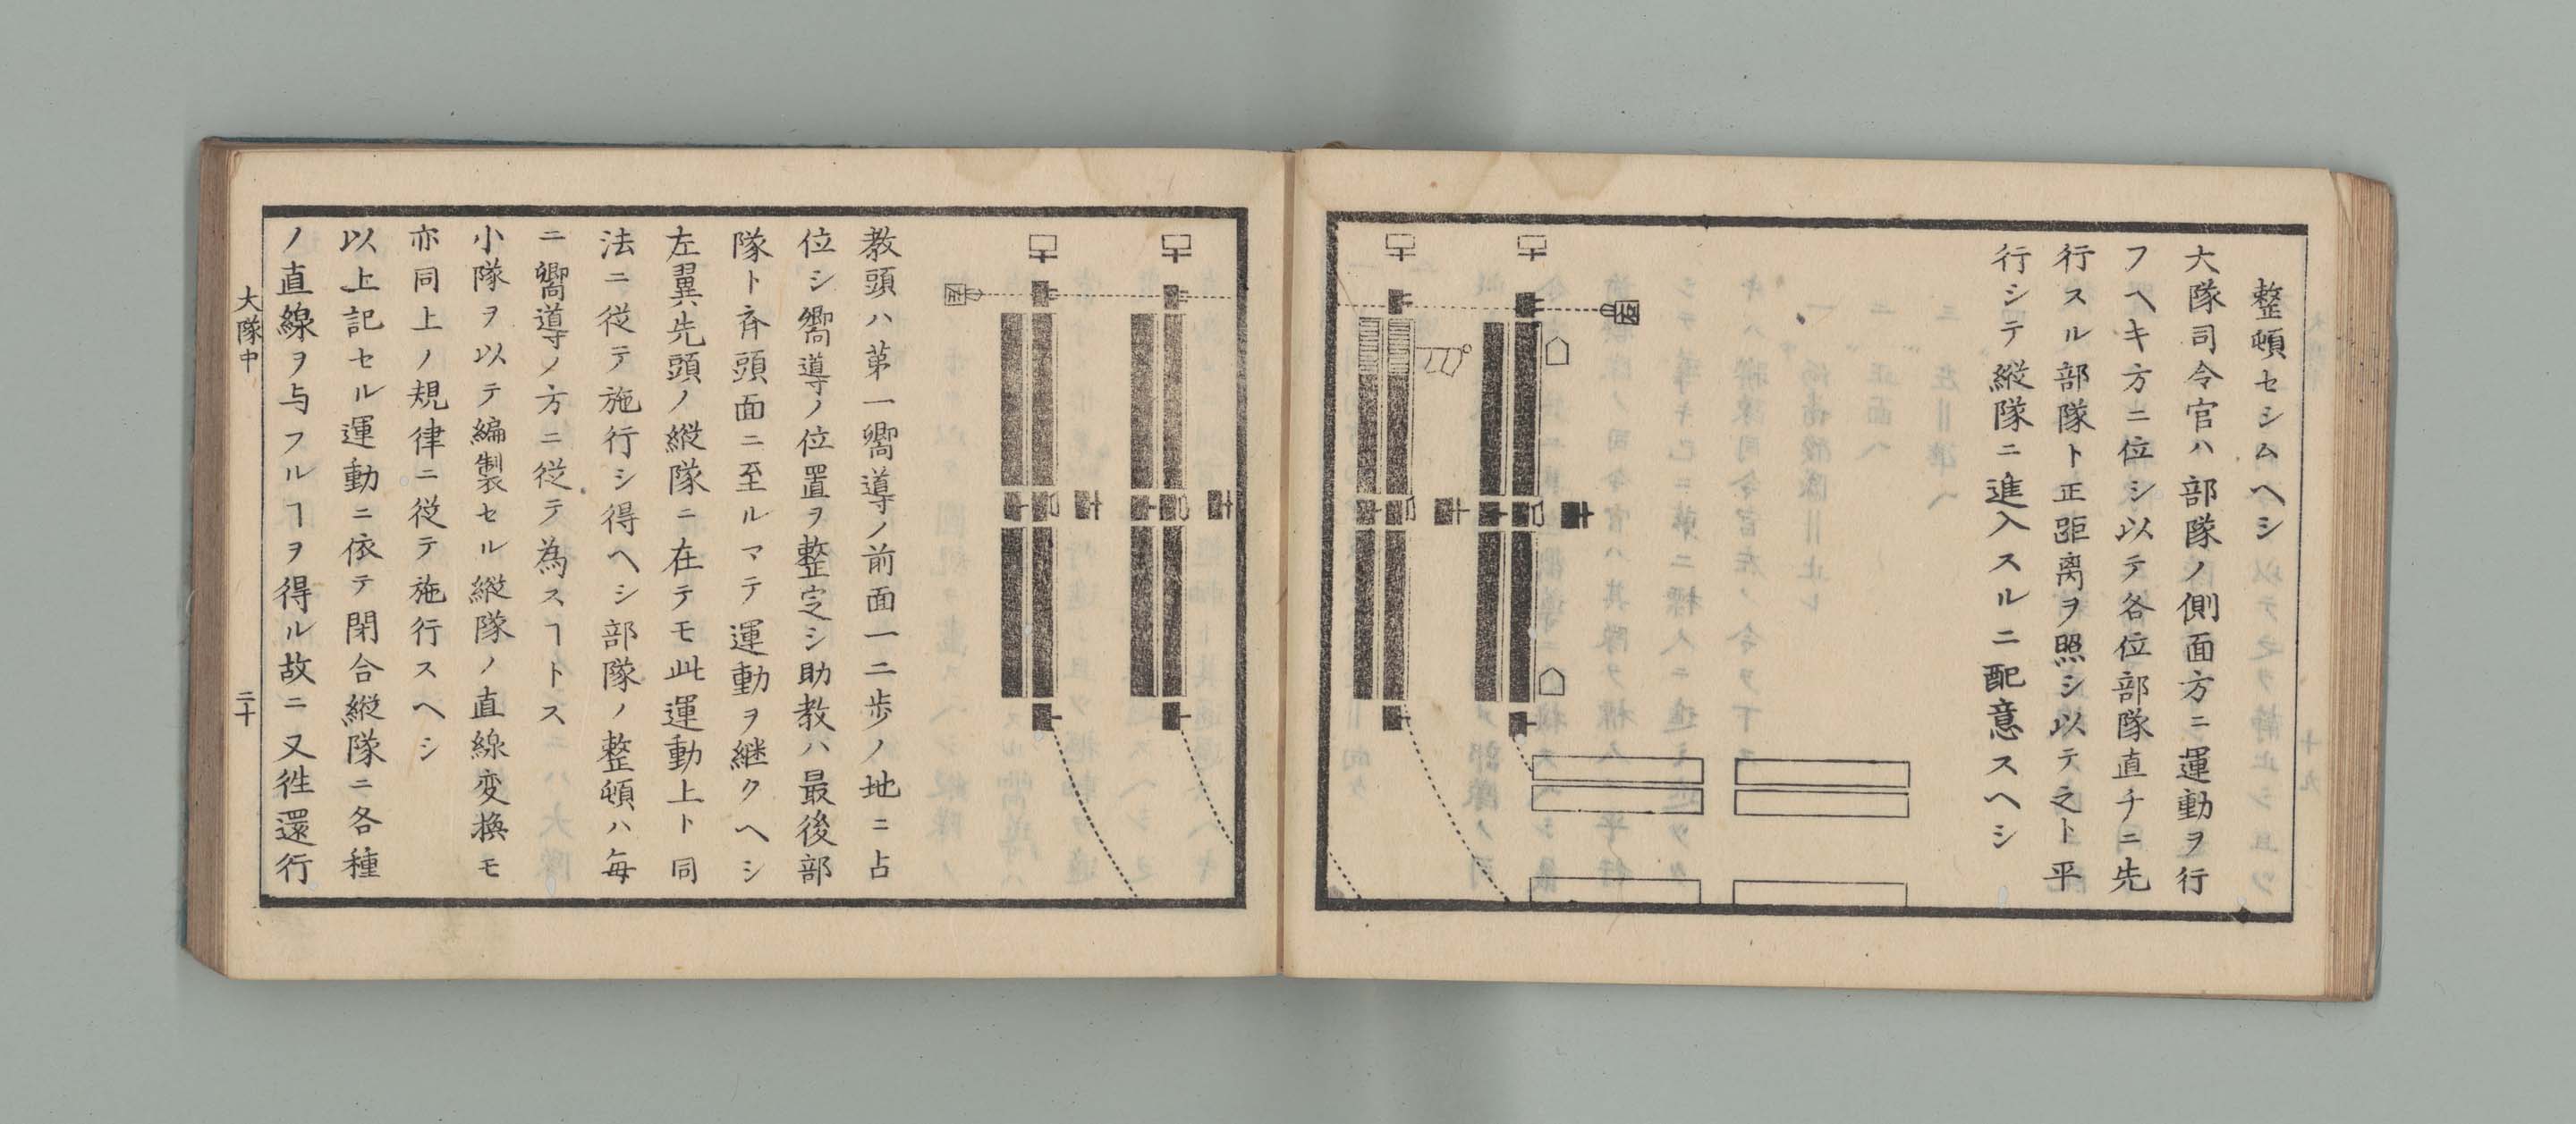 整頓セシムヘシ
大隊司令官ハ部隊ノ側面方ニ運動ヲ行
フヘキ方ニ位シ以テ各位部隊直チニ先
行スル部隊ト正距离ヲ照シ以テ之ト平
行シテ縦隊ニ進入スルニ配意スヘシ
教頭ハ苐一嚮導ノ前面一二歩ノ地ニ占
位シ嚮導ノ位置ヲ整定シ助教ハ最後部
隊ト斉頭面ニ至ルマテ運動ヲ継クヘシ
左翼先頭ノ縦隊ニ在テモ此運動上ト同
法ニ従テ施行シ得ヘシ部隊ノ整頓ハ毎
ニ嚮導ノ方ニ従テ為スヿトス
小隊ヲ以テ編製セル縦隊ノ直線変換モ
亦同上ノ規律ニ従テ施行スヘシ
以上記セル運動ニ依テ閉合縦隊ニ各種
ノ直線ヲ与フルヿヲ得ル故ニ又徃還行
大隊中
二十